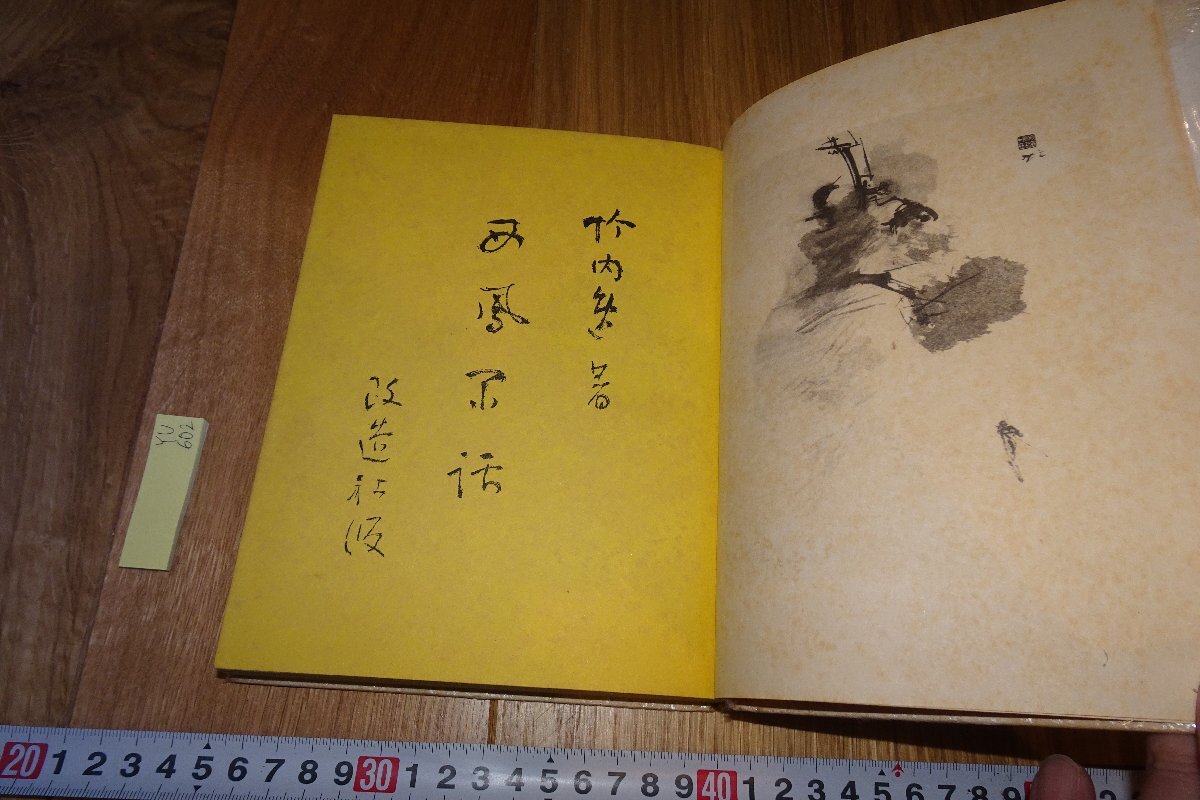 竹内逸著
西鳳閑話
改造社版
YU
602
20 1 2 3 4 5 6 7 8 9 30 1 2 3 4 5 6 7 8 9 40 1 2 3 4 5 6 7 8 9